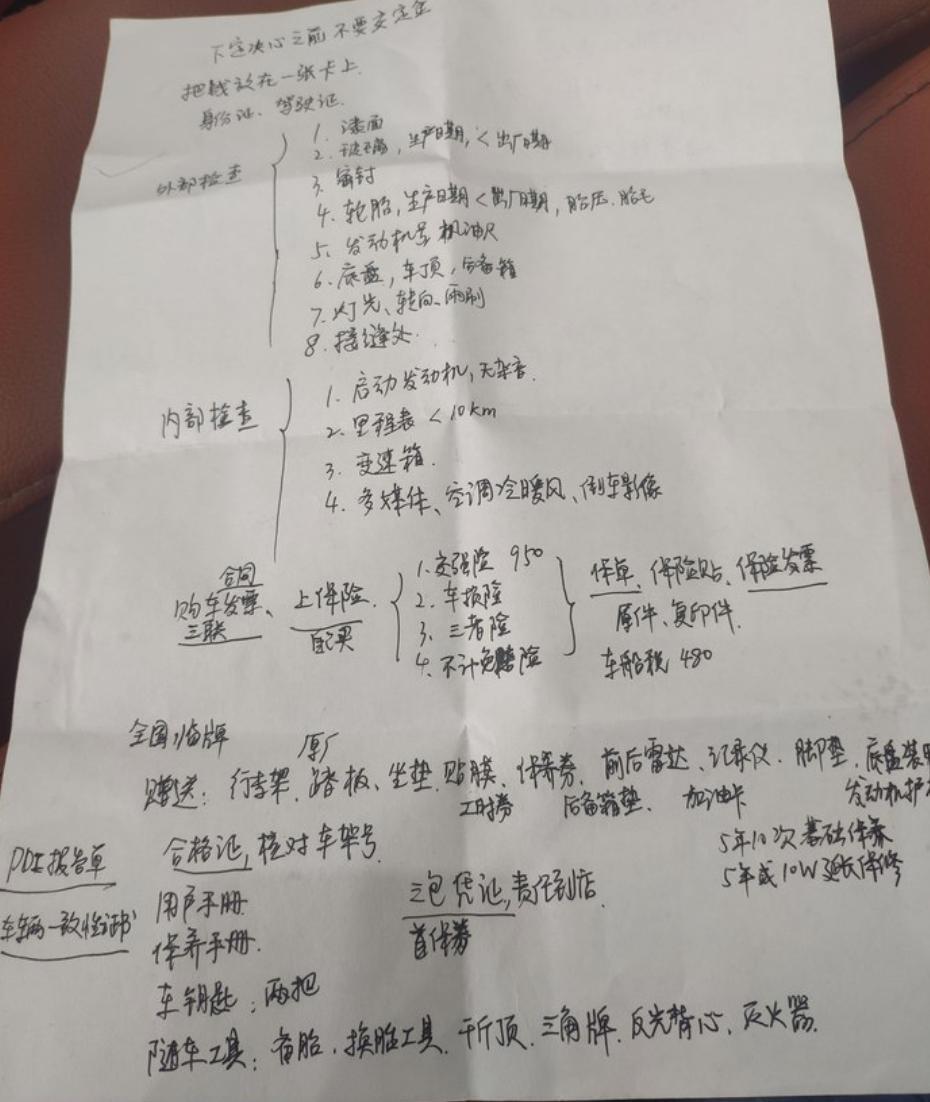 下定决心之前不要交定金
把钱放在一张卡上.
身份证、驾驶证.
外部检查
1. 漆面
2. 玻璃, 生产日期, < 出厂日期
3. 密封
4. 轮胎, 生产日期 < 出厂日期, 胎压. 胎毛
5. 发动机号 机油尺
6. 底盘, 车顶, 后备箱
7. 灯光、转向、雨刷
8. 接缝处.
内部检查
1. 启动发动机, 无杂音.
2. 里程表 < 10km
3. 变速箱.
4. 多媒体、空调冷暖风、倒车影像
合同
购车发票、 上保险.
三联 自己买
1. 交强险 950
2. 车损险
3. 三者险
4. 不计免赔险
保单、保险贴、保险发票
原件、复印件.
车船税 480
全国临牌
原厂
赠送: 行李架、踏板、坐垫、贴膜、保养券、前后雷达、记录仪、脚垫、底盘装
工时券 后备箱垫、 加油卡 发动机护
5年10次基础保养
5年或10W延长保修
PDI报告单 合格证, 核对车架号.
用户手册 三包凭证, 责任到店.
车辆一致性证书 首保券
保养手册.
车钥匙: 两把
随车工具: 备胎、换胎工具、千斤顶、三角牌、反光背心、灭火器.